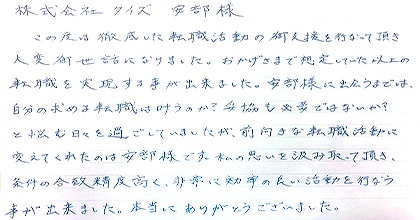 株式会社クイズ 安部様
この度は徹底した転職活動の御支援を行なって頂き
大変御世話になりました。おかげさまで想定していた以上の
転職を実現する事が出来ました。安部様に出会うまでは、
自分の求める転職は叶うのか?妥協も必要ではないか?
と悩む日々を過ごしていましたが、前向きな転職活動に
変えてくれたのは安部様です。私の思いを汲み取って頂き、
条件の合致精度高く、非常に効率の良い活動を行なう
事が出来ました。本当にありがとうございました。